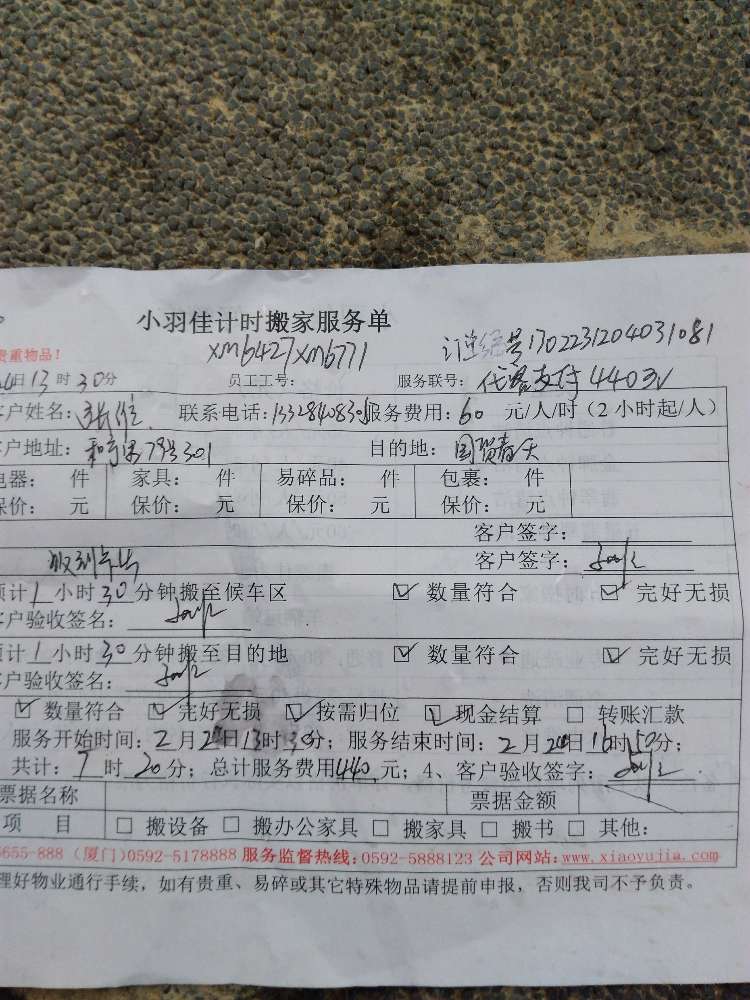 小羽佳计时搬家服务单
贵重物品！
XM6427 XM6771 订单编号1702231204031081
日13时30分 员工工号： 服务联号：代客支付440元
客户姓名： 联系电话： 服务费用：60 元/人/时（2小时起/人）
客户地址： 301 目的地：国贸春天
电器： 件 家具： 件 易碎品： 件 包裹： 件
保价： 元 保价： 元 保价： 元 保价： 元
客户签字：
收到 客户签字：
预计1小时30分钟搬至候车区 ☑ 数量符合 ☑ 完好无损
客户验收签名：
预计1小时30分钟搬至目的地 ☑ 数量符合 ☑ 完好无损
客户验收签名：
☑ 数量符合 ☑ 完好无损 ☑ 按需归位 ☑ 现金结算 □ 转账汇款
服务开始时间：2月2日13时30分；服务结束时间：2月2日16时50分；
共计：7时20分；总计服务费用440元；4、客户验收签字：
票据名称 票据金额
项 目 □ 搬设备 □ 搬办公家具 □ 搬家具 □ 搬书 □ 其他：
5655-888 (厦门)0592-5178888 服务监督热线：0592-5888123 公司网站：www.xiaoyujia.com
理好物业通行手续，如有贵重、易碎或其它特殊物品请提前申报，否则我司不予负责。